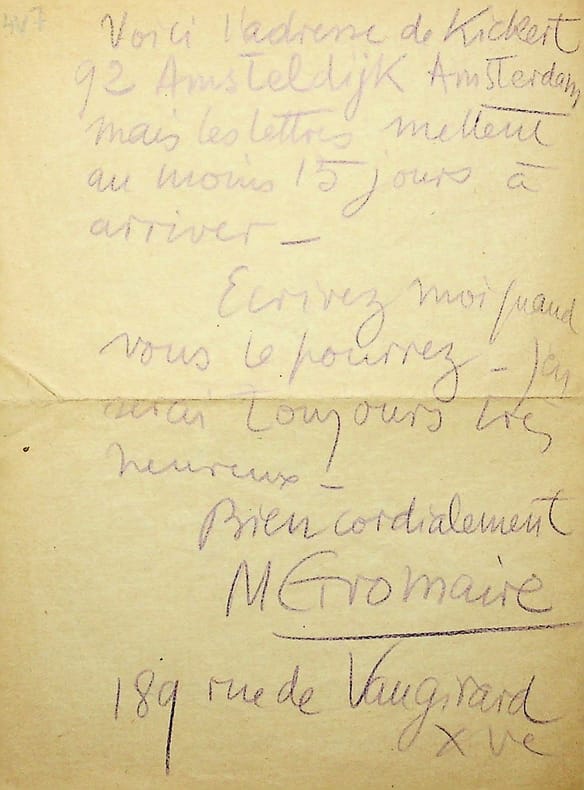 Voici l'adresse de Kickert
92 Amsteldijk Amsterdam
mais les lettres mettent
au moins 15 jours à
arriver –
Ecrivez moi quand
vous le pourrez – j'en
serai toujours très
heureux –
Bien cordialement
M Gromaire
189 rue de Vaugirard
XVe